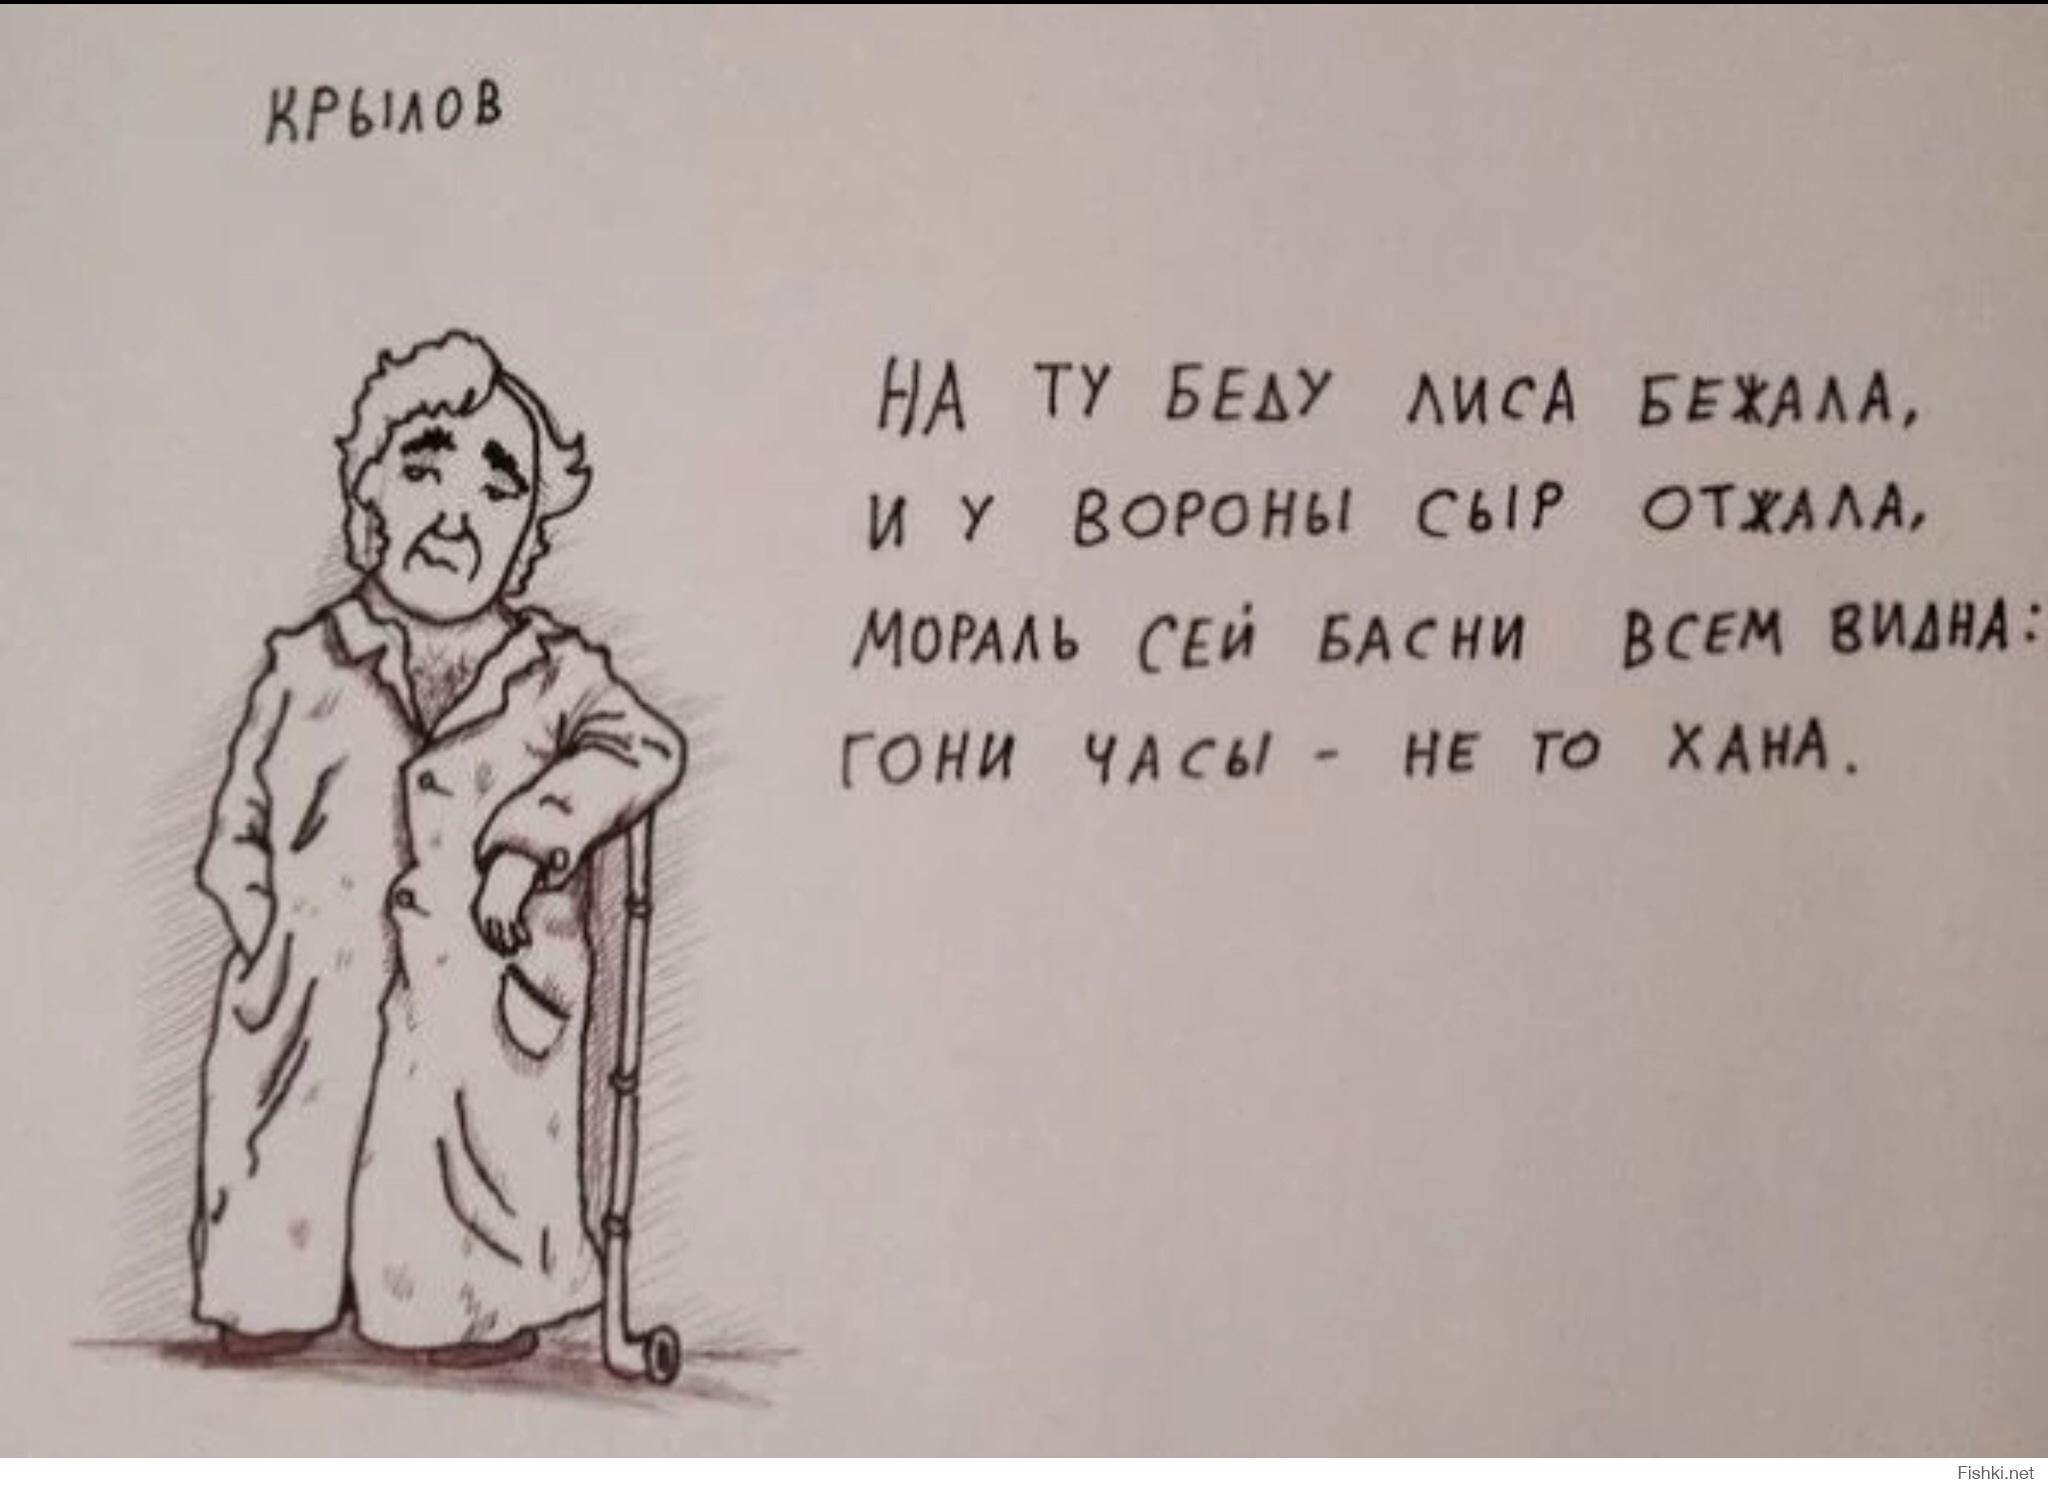 КРЫЛОВ
НА ТУ БЕДУ ЛИСА БЕЖАЛА,
И У ВОРОНЫ СЫР ОТЖАЛА,
МОРАЛЬ СЕЙ БАСНИ ВСЕМ ВИДНА:
ГОНИ ЧАСЫ - НЕ ТО ХАНА.
Fishki.net